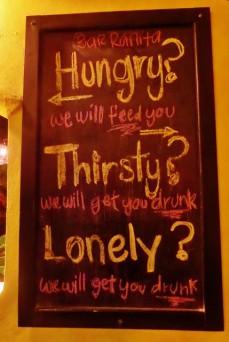 Bar Ranita
Hungry?
we will feed you
Thirsty?
we will get you drunk
Lonely?
we will get you drunk